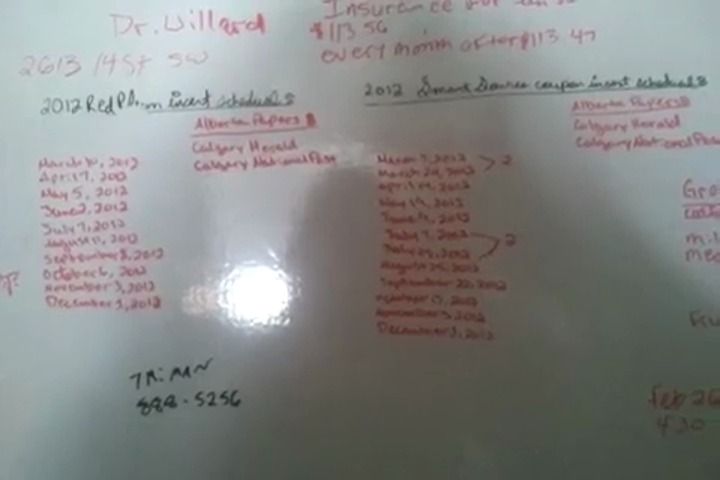 Insurance for
Dr. Willard
$113.56
every month after $113.47
2613 14 St SW
2012 Red Plum insert schedules
Alberta Papers
Calgary Herald
Calgary National Post
March 10, 2012
April 7, 2012
May 5, 2012
June 2, 2012
July 7, 2012
August 11, 2012
September 8, 2012
October 6, 2012
November 3, 2012
December 1, 2012
2012 Smart Source coupon insert schedules
Alberta Papers
Calgary Herald
Calgary National Post
March 3, 2012
2
March 24, 2012
April 14, 2012
May 19, 2012
June 16, 2012
July 7, 2012
2
July 28, 2012
August 25, 2012
September 22, 2012
2012
November 3, 2012
December 1, 2012
Feb 26
4:30
888-5256